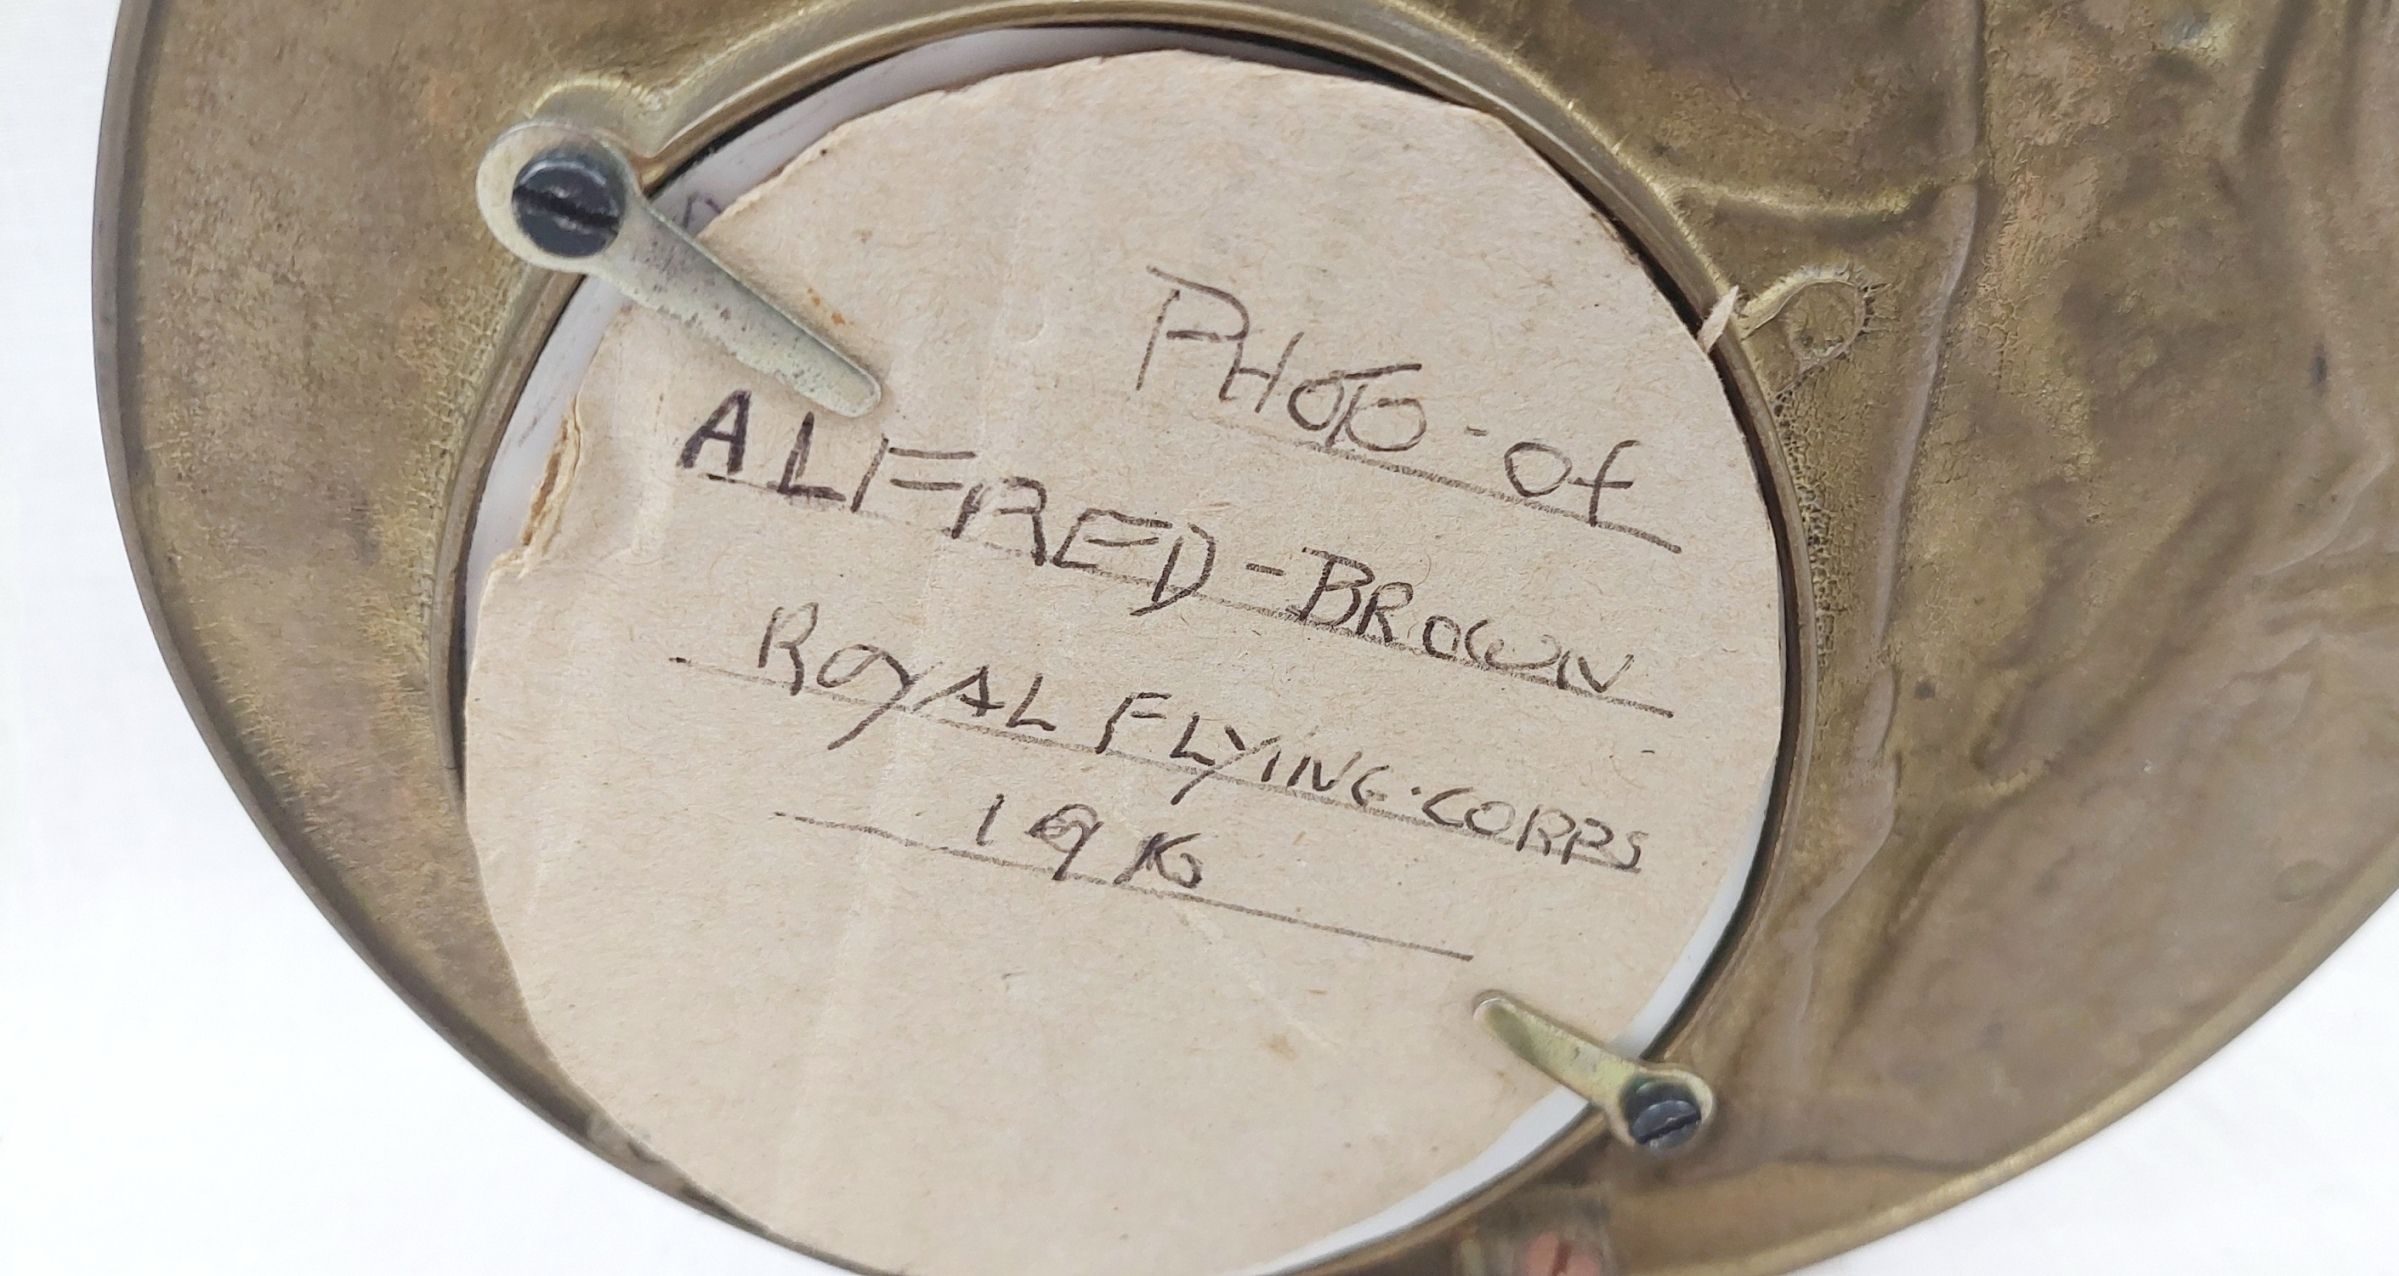 PHOTO-Of
ALFRED-BROWN
ROYAL FLYING.CORPS
1916